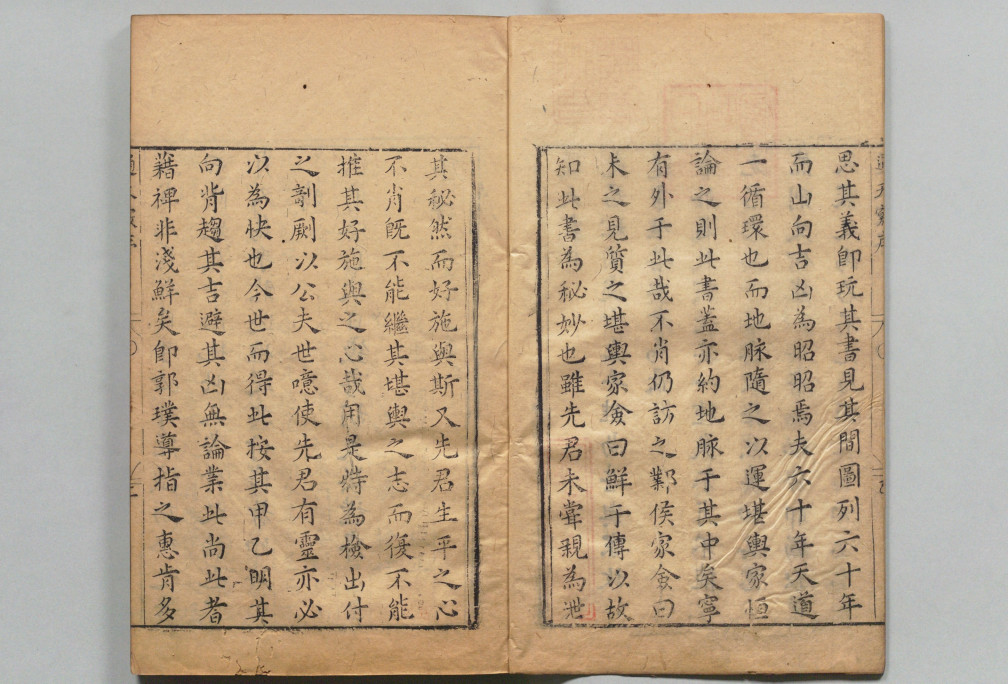 思其義即玩其書見其間圖列六十年
而山向吉凶為昭昭焉夫六十年天道
一循環也而地脉隨之以運堪輿家恒
論之則此書蓋亦約地脉于其中矣寧
有外于此哉不肖仍訪之鄴侯家僉曰
未之見質之堪輿家僉曰鮮于傳以故
知此書為秘妙也雖先君未嘗親為泄
其秘然而好施與斯又先君生平之心
不肖既不能繼其堪輿之志而復不能
推其好施與之心哉用是特為檢出付
之剞劂以公夫世噫使先君有靈亦必
以為快也今世而得此按其甲乙明其
向背趨其吉避其凶無論業此尚此者
藉裨非淺鮮矣即郭璞導指之惠肯多